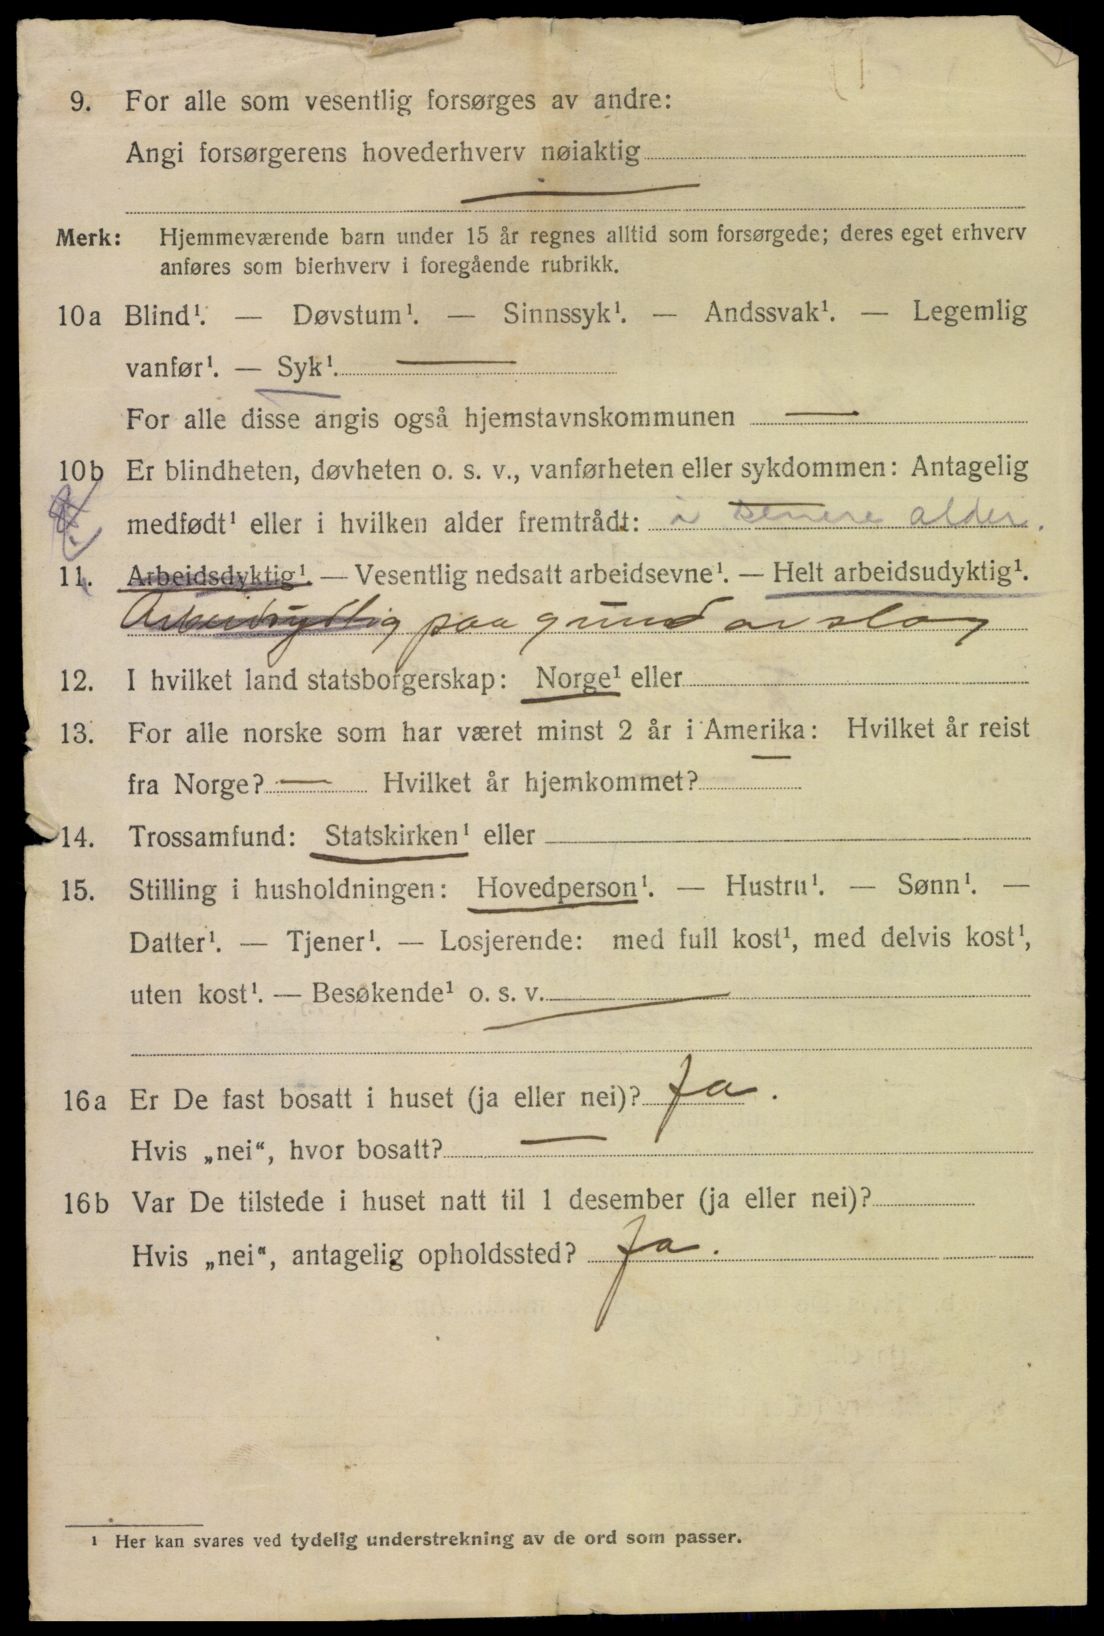 9. For alle som vesentlig forsørges av andre:
Angi forsørgerens hovederhverv nøiaktig
Merk: Hjemmeværende barn under 15 år regnes alltid som forsørgede; deres eget erhverv
anføres som bierhverv i foregående rubrikk.
10a Blind¹. — Døvstum¹. — Sinnssyk¹. — Andssvak¹. — Legemlig
vanfør¹. — Syk¹.
For alle disse angis også hjemstavnskommunen
10b Er blindheten, døvheten o. s. v., vanførheten eller sykdommen: Antagelig
medfødt¹ eller i hvilken alder fremtrådt: i senere alder.
11. Arbeidsdyktig¹. — Vesentlig nedsatt arbeidsevne¹. — Helt arbeidsudyktig¹.
paa grund av slag
12. I hvilket land statsborgerskap: Norge¹ eller
13. For alle norske som har været minst 2 år i Amerika: Hvilket år reist
fra Norge? — Hvilket år hjemkommet?
14. Trossamfund: Statskirken¹ eller
15. Stilling i husholdningen: Hovedperson¹. — Hustru¹. — Sønn¹. —
Datter¹. — Tjener¹. — Losjerende: med full kost¹, med delvis kost¹,
uten kost¹. — Besøkende¹ o. s. v.
16a Er De fast bosatt i huset (ja eller nei)? Ja.
Hvis „nei“, hvor bosatt? —
16b Var De tilstede i huset natt til 1 desember (ja eller nei)?
Hvis „nei“, antagelig opholdssted? Ja.
¹ Her kan svares ved tydelig understrekning av de ord som passer.